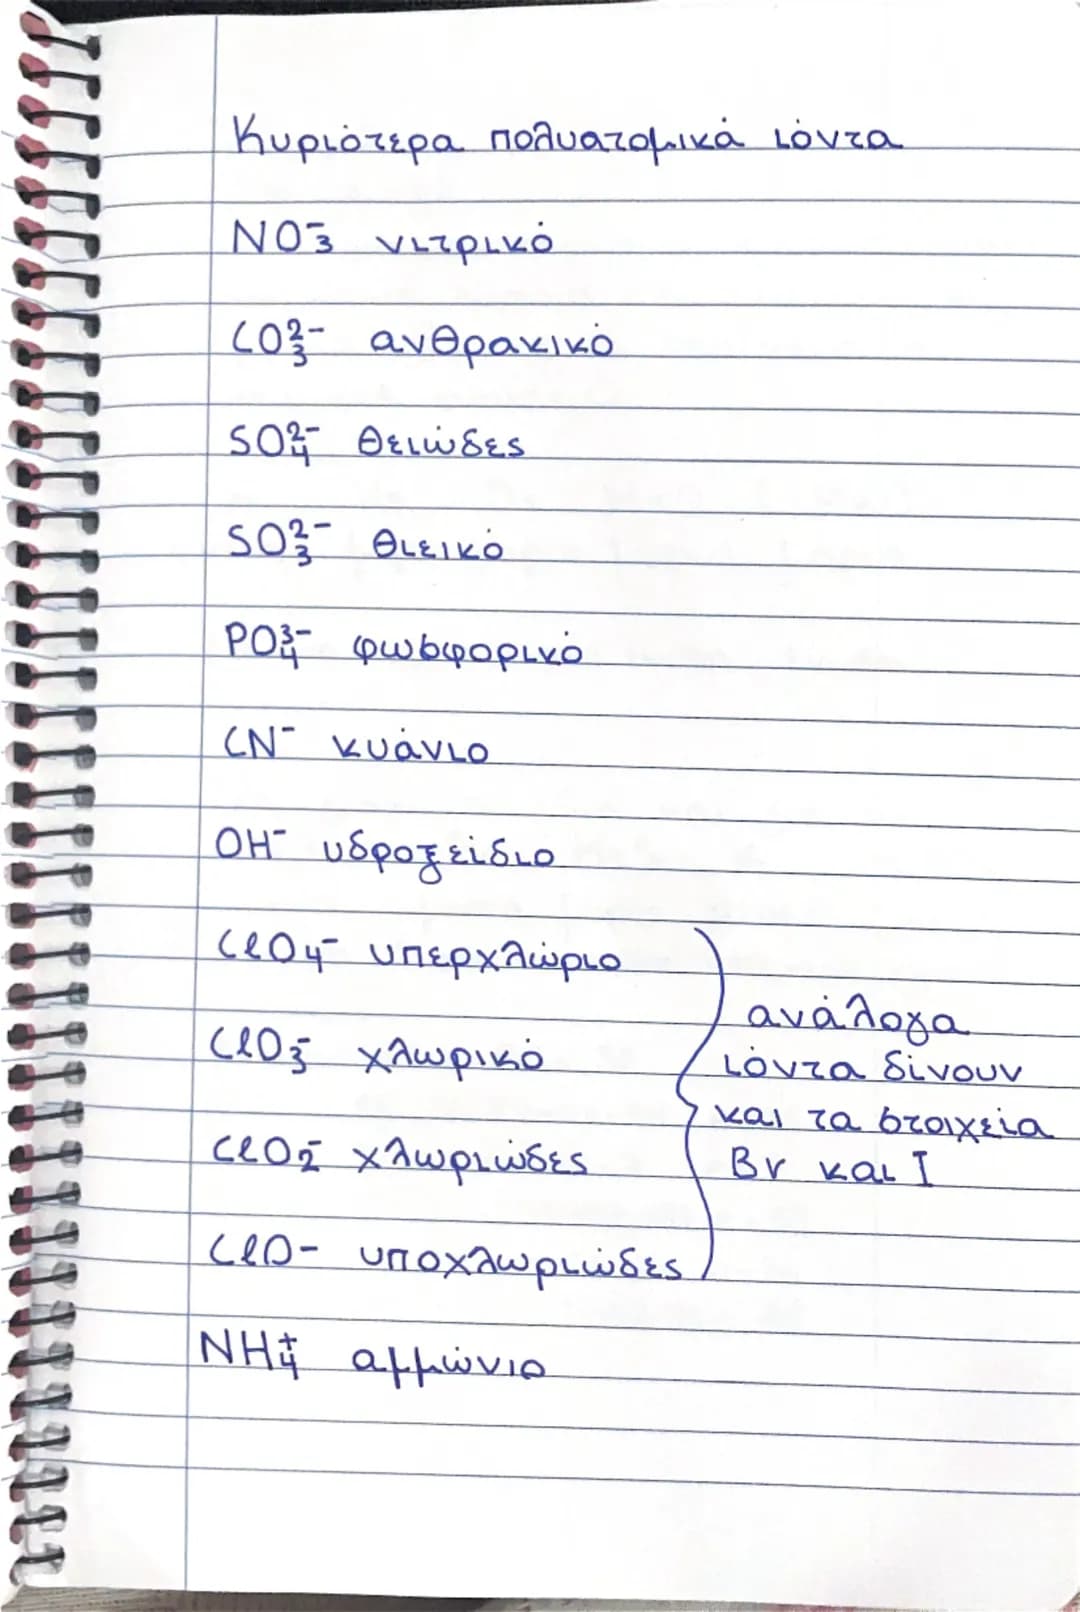 Κυριότερα πολυατομικά ιόντα
NO₃⁻ νιτρικό
CO₃²⁻ ανθρακικό
SO₄²⁻ θειώδες
SO₃²⁻ θιεικό
PO₄³⁻ φωσφορικό
CN⁻ κυάνιο
OH⁻ υδροξείδιο
ClO₄⁻ υπερχλώριο
ClO₃⁻ χλωρικό
ClO₂⁻ χλωριώδες
ClO⁻ υποχλωριώδες
ανάλογα
ιόντα δίνουν
και τα στοιχεία
Br και I
NH₄⁺ αμμώνιο